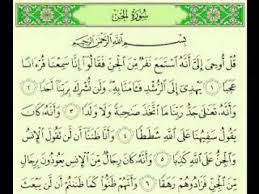 سورة الجن
بسم الله الرحمن الرحيم
قُلْ أُوحِيَ إِلَيَّ أَنَّهُ اسْتَمَعَ نَفَرٌ مِّنَ الْجِنِّ فَقَالُوا إِنَّا سَمِعْنَا قُرْءَانًا
عَجَبًا ١ يَهْدِي إِلَى الرُّشْدِ فَـَٔامَنَّا بِهِ وَلَن نُّشْرِكَ بِرَبِّنَا أَحَدًا
٢ وَأَنَّهُ تَعَٰلَىٰ جَدُّ رَبِّنَا مَا اتَّخَذَ صَٰحِبَةً وَلَا وَلَدًا ٣ وَأَنَّهُ كَانَ
يَقُولُ سَفِيهُنَا عَلَى اللَّهِ شَطَطًا ٤ وَأَنَّا ظَنَنَّا أَن لَّن تَقُولَ الْإِنسُ
وَالْجِنُّ عَلَى اللَّهِ كَذِبًا ٥ وَأَنَّهُ كَانَ رِجَالٌ مِّنَ الْإِنسِ يَعُوذُونَ بِرِجَالٍ
مِّنَ الْجِنِّ فَزَادُوهُمْ رَهَقًا ٦ وَأَنَّهُمْ ظَنُّوا كَمَا ظَنَنتُمْ أَن لَّن يَبْعَثَ